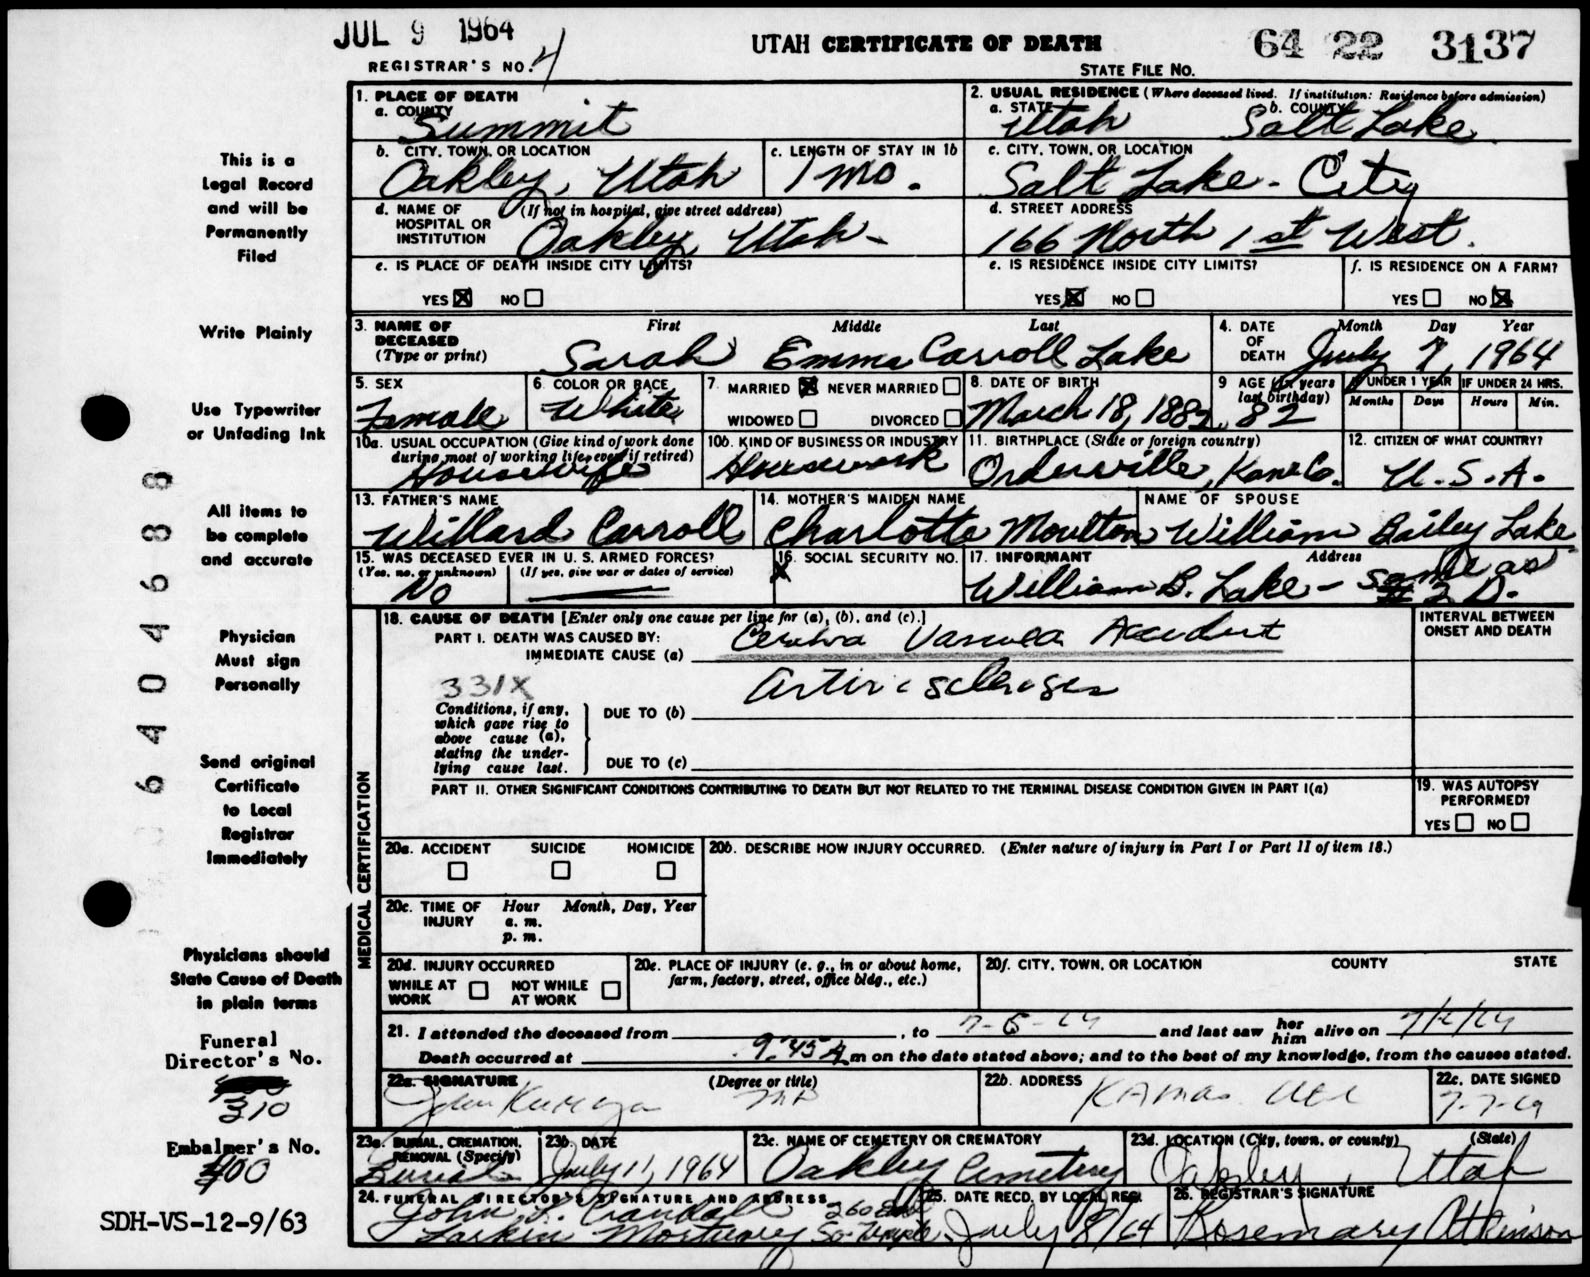 JUL 9 1964
REGISTRAR'S NO. 4
UTAH CERTIFICATE OF DEATH
64 22 3137
STATE FILE NO.
This is a
Legal Record
and will be
Permanently
Filed
Write Plainly
Use Typewriter
or Unfading Ink
All items to
be complete
and accurate
Physician
Must sign
Personally
Send original
Certificate
to Local
Registrar
Immediately
Physicians should
State Cause of Death
in plain terms
Funeral
Director's No.
310
Embalmer's No.
400
SDH-VS-12-9/63
6404688
1. PLACE OF DEATH
a. COUNTY
Summit
2. USUAL RESIDENCE (Where deceased lived. If institution: Residence before admission)
a. STATE b. COUNTY
Utah Salt Lake
b. CITY, TOWN, OR LOCATION
Oakley, Utah
c. LENGTH OF STAY IN 1b
1 mo.
c. CITY, TOWN, OR LOCATION
Salt Lake - City
d. NAME OF HOSPITAL OR INSTITUTION (If not in hospital, give street address)
Oakley, Utah -
d. STREET ADDRESS
166 North 1st West.
e. IS PLACE OF DEATH INSIDE CITY LIMITS?
YES ☒ NO ☐
e. IS RESIDENCE INSIDE CITY LIMITS?
YES ☒ NO ☐
f. IS RESIDENCE ON A FARM?
YES ☐ NO ☒
3. NAME OF DECEASED (Type or print)
First Middle Last
Sarah Emma Carroll Lake
4. DATE OF DEATH
Month Day Year
July 7, 1964
5. SEX
Female
6. COLOR OR RACE
White
7. MARRIED ☒ NEVER MARRIED ☐
WIDOWED ☐ DIVORCED ☐
8. DATE OF BIRTH
March 18, 1882
9 AGE (In years last birthday)
82
IF UNDER 1 YEAR
Months Days
IF UNDER 24 HRS.
Hours Min.
10a. USUAL OCCUPATION (Give kind of work done during most of working life, even if retired)
Housewife
10b. KIND OF BUSINESS OR INDUSTRY
Housework
11. BIRTHPLACE (State or foreign country)
Orderville, Kane Co.
12. CITIZEN OF WHAT COUNTRY?
U.S.A.
13. FATHER'S NAME
Willard Carroll
14. MOTHER'S MAIDEN NAME
Charlotte Moulton
NAME OF SPOUSE
William Bailey Lake
15. WAS DECEASED EVER IN U.S. ARMED FORCES?
(Yes, no, or unknown) (If yes, give war or dates of service)
No
16. SOCIAL SECURITY NO.
X
17. INFORMANT Address
William B. Lake - same as
# 2 D.
MEDICAL CERTIFICATION
18. CAUSE OF DEATH [Enter only one cause per line for (a), (b), and (c).]
PART I. DEATH WAS CAUSED BY:
IMMEDIATE CAUSE (a)
Cerebra Vascula Accident
INTERVAL BETWEEN
ONSET AND DEATH
331X
Conditions, if any,
which gave rise to
above cause (a),
stating the under-
lying cause last.
DUE TO (b)
DUE TO (c)
PART II. OTHER SIGNIFICANT CONDITIONS CONTRIBUTING TO DEATH BUT NOT RELATED TO THE TERMINAL DISEASE CONDITION GIVEN IN PART I(a)
19. WAS AUTOPSY
PERFORMED?
YES ☐ NO ☐
20a. ACCIDENT SUICIDE HOMICIDE
☐ ☐ ☐
20b. DESCRIBE HOW INJURY OCCURRED. (Enter nature of injury in Part I or Part II of item 18.)
20c. TIME OF INJURY
Hour Month, Day, Year
a. m.
p. m.
20d. INJURY OCCURRED
WHILE AT WORK ☐ NOT WHILE AT WORK ☐
20e. PLACE OF INJURY (e. g., in or about home,
farm, factory, street, office bldg., etc.)
20f. CITY, TOWN, OR LOCATION COUNTY STATE
21. I attended the deceased from , to and last saw her him alive on
Death occurred at 9:45 A m on the date stated above; and to the best of my knowledge, from the causes stated.
22a. SIGNATURE (Degree or title)
John MD
22b. ADDRESS
Kamas
22c. DATE SIGNED
23a. BURIAL, CREMATION, REMOVAL (Specify)
Burial
23b. DATE
July 11, 1964
23c. NAME OF CEMETERY OR CREMATORY
Oakley Cemetery
23d. LOCATION (City, town, or county) (State)
Oakley, Utah
24. FUNERAL DIRECTOR'S SIGNATURE AND ADDRESS
John L. Crandall 260 E
Larkin Mortuary So. Temple
25. DATE RECD. BY LOCAL REG.
July 8/64
26. REGISTRAR'S SIGNATURE
Rosemary Atkinson